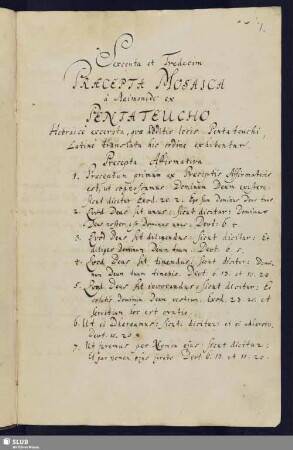 1.
Sexcenta et Tredecim
PRÆCEPTA MOSAICA
à Maimonide ex
PENTATEUCHO
Hebraicè excerpta, quæ additis locis Pentateuchi,
Latinè translata hic ordine exhibentur.
Præcepta Affirmativa
1. Præceptum primum ex Præceptis Affirmativis
est, ut cognoscamus Dominum Deum existere.
sicut dicitur Exod. 20. 2. Ego sum Dominus Deus tuus
2. Quod Deus sit unus: sicut dicitur: Dominus
Deus noster, est Dominus unus. Deut: 6. 4.
3. Quod Deus sit diligendus: sicut dicitur: Et
diliges Dominum Deum tuum. Deut. 6. 5.
4. Quod Deus sit timendus: sicut dicitur: Domi-
num Deum tuum timebis. Deut. 6. 13. et 10. 20
5. Quod Deus sit invocandus: sicut dicitur: Et
coletis Dominum Deum vestrum. Exod. 23. 25. et
servitium hoc est oratio.
6. Ut ei adhæreamus: sicut dicitur: et ei adhærebis.
Deut. 10. 20.
7. Ut juremus per Nomen ejus: sicut dicitur:
Et per nomen ejus jurabis. Deut. 6. 13. et 10. 20.
SLUB